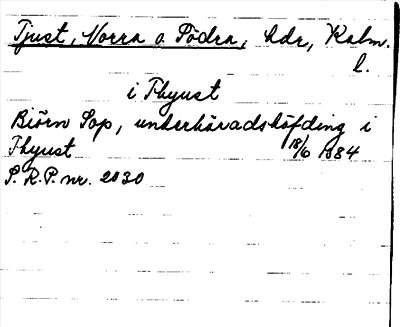 Tjust, Norra o Södra, hdr, Kalm.
l.
i Thyust
Biörn Sop, underhäradshöfding i
Thyust 18/6 1384
S. R. P. nr. 2030